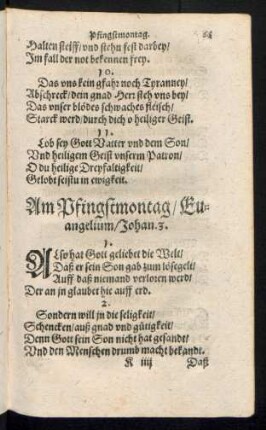 Pfingstmontag.
Halten steiff/ vnd stehn fest darbey/
Im fall der not bekennen frey.
10.
Das vns kein gfahr noch Tyranney/
Abschreck/ dein gnad Herr steh vns bey/
Das vnser blödes schwaches fleisch/
Starck werd/ durch dich o heiliger Geist.
11.
Lob sey Gott Vatter vnd dem Son/
Vnd heiligem Geist vnserm Patron/
O du heilige Dreyfaltigkeit/
Gelobt seistu in ewigkeit.
Am Pfingstmontag/ Eu-
angelium/ Johan. 3.
1.
Also hat Gott geliebet die Welt/
Daß er sein Son gab zum lösegelt/
Auff daß niemand verloren werd/
Der an jn glaubet hie auff erd.
2.
Sondern will jn die seligkeit/
Schencken/ auß gnad vnd gütigkeit/
Denn Gott sein Son nicht hat gesandt/
Vnd den Menschen drumb macht bekandt.
K iiij Daß